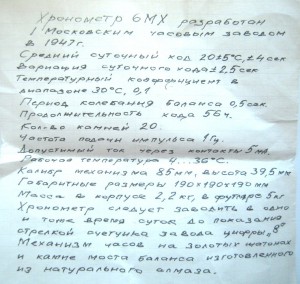 Хронометр 6МХ разработан
I Московским часовым заводом
в 1947г.
Средний суточный ход 20±5°С, ±4 сек
Вариация суточного хода ±2,5 сек
Температурный коэффициент в
диапазоне 30°С, 0,1
Период колебания баланса 0,5 сек.
Продолжительность хода 56ч.
Кол-во камней 20.
Частота подачи импульса 1Гц.
Допустимый ток через контакты 5ма.
Рабочая температура 4...36°С.
Калибр механизма 85мм, высота 39,5мм
Габаритные размеры 190х190х190 мм
Масса в корпусе 2,2 кг, в футляре 5 кг
Хронометр следует заводить в одно
и тоже время суток до показания
стрелкой счетчика завода цифры „8"
Механизм часов на золотых шатонах
и камне моста баланса изготовленного
из натурального алмаза.